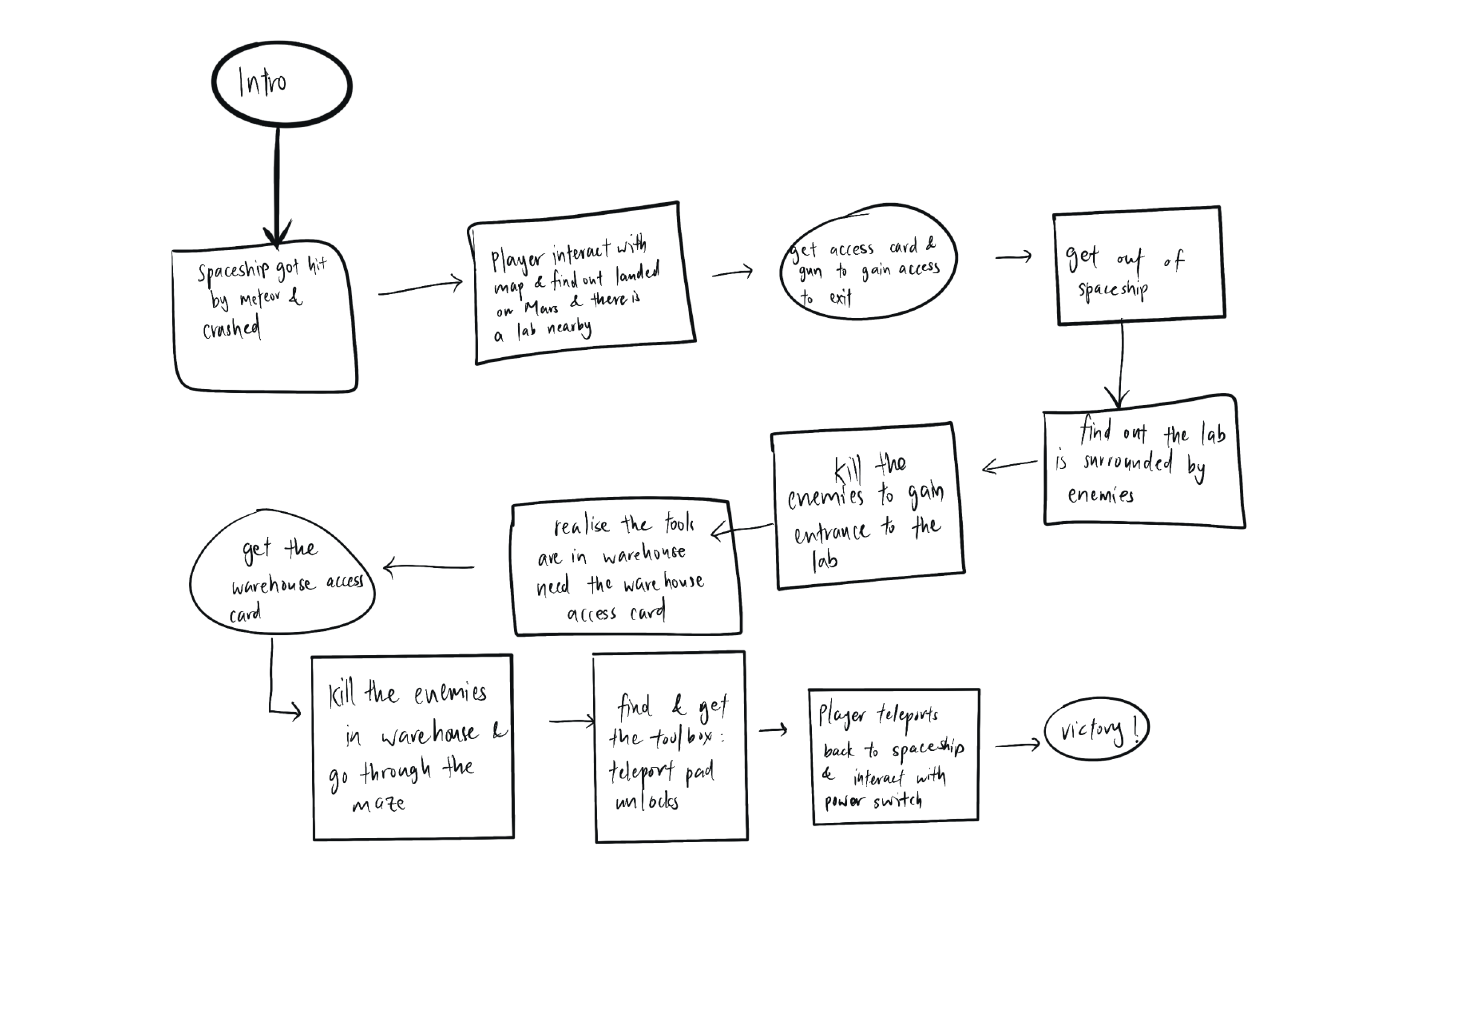 Intro
Spaceship got hit
by meteor &
crashed
Player interact with
map & find out landed
on Mars & there is
a lab nearby
get access card &
gun to gain access
to exit
get out of
spaceship
find out the lab
is surrounded by
enemies
kill the
enemies to gain
entrance to the
lab
realise the tools
are in warehouse
need the warehouse
access card
get the
warehouse access
card
kill the enemies
in warehouse &
go through the
maze
find & get
the toolbox:
teleport pad
unlocks
Player teleports
back to spaceship
& interact with
power switch
victory!